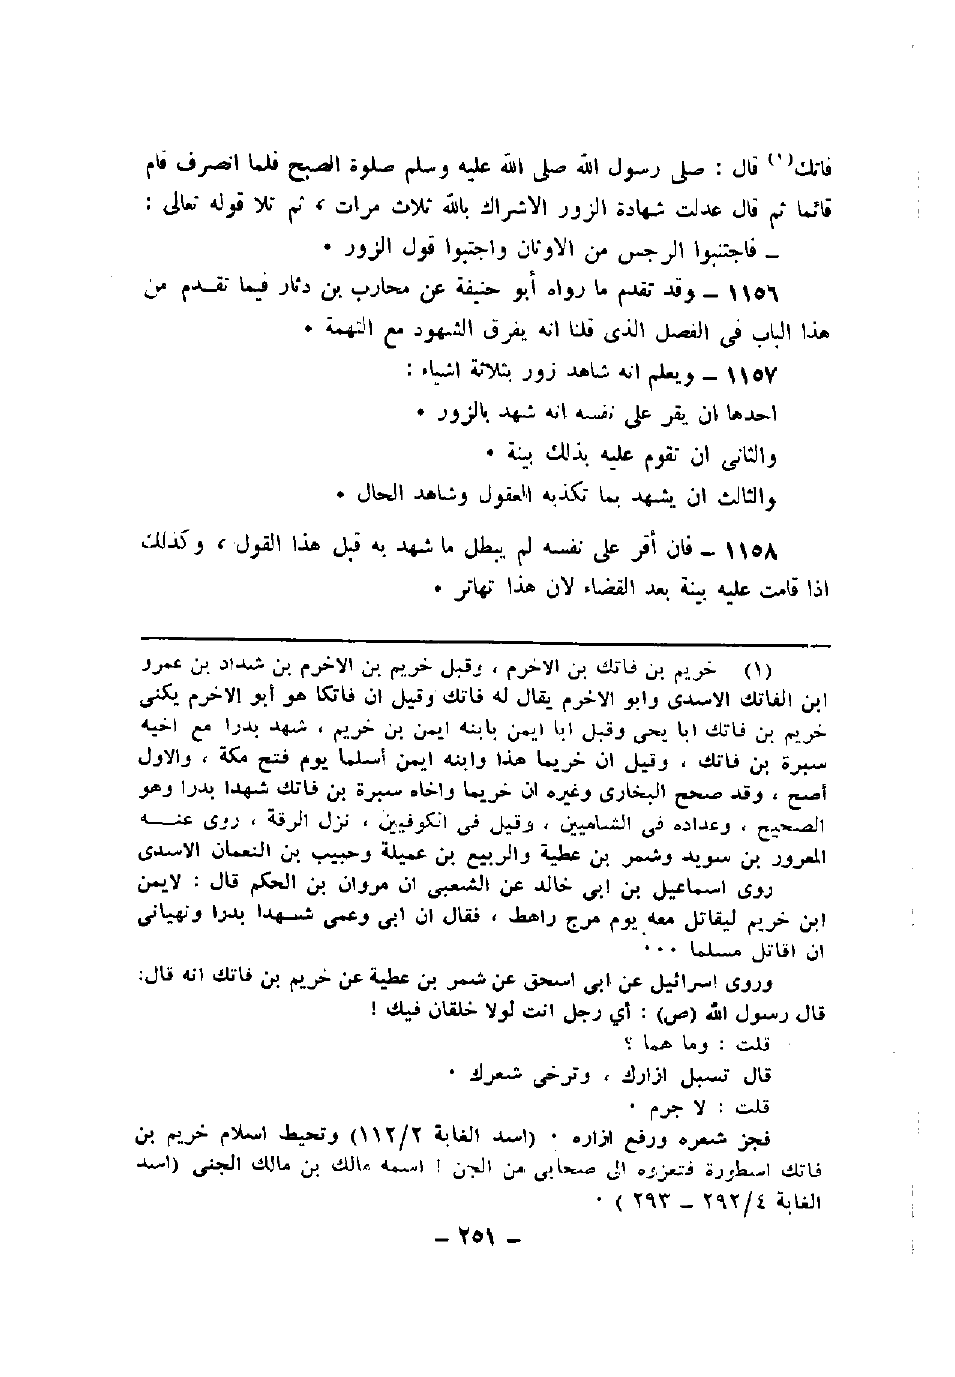 فاتك(١) قال : صلى رسول الله صلى الله عليه وسلم صلوة الصبح فلما انصرف قام
قائما ثم قال عدلت شهادة الزور الاشراك بالله ثلاث مرات ، ثم تلا قوله تعالى :
ـ فاجتنبوا الرجس من الاوثان واجتبوا قول الزور ٠
١١٥٦ ـ وقد تقدم ما رواه أبو حنيفة عن محارب بن دثار فيما تقـدم من
هذا الباب في الفصل الذى قلنا انه يفرق الشهود مع التهمة ٠
١١٥٧ ـ ويعلم انه شاهد زور بثلاثة اشياء :
احدها ان يقر على نفسه انه شهد بالزور ٠
والثانى ان تقوم عليه بذلك بينة ٠
والثالث ان يشهد بما تكذبه العقول وشاهد الحال ٠
١١٥٨ ـ فان أقر على نفسه لم يبطل ما شهد به قبل هذا القول ، وكذلك
اذا قامت عليه بينة بعد القضاء لان هذا تهاتر ٠
(١) خريم بن فاتك بن الاخرم ، وقيل خريم بن الاخرم بن شداد بن عمرو
ابن الفاتك الاسدى وابو الاخرم يقال له فاتك وقيل ان فاتكا هو أبو الاخرم يكنى
خريم بن فاتك ابا يحى وقيل ابا ايمن بابنه ايمن بن خريم ، شهد بدرا مع اخيه
سبرة بن فاتك ، وقيل ان خريما هذا وابنه ايمن أسلما يوم فتح مكة ، والاول
أصح ، وقد صحح البخارى وغيره ان خريما واخاه سبرة بن فاتك شهدا بدرا وهو
الصحيح ، وعداده في الشاميين ، وقيل في الكوفيين ، نزل الرقة ، روى عنـــه
المعرور بن سويد وشمر بن عطية والربيع بن عميلة وحبيب بن النعمان الاسدى
روى اسماعيل بن ابى خالد عن الشعبى ان مروان بن الحكم قال : لايمن
ابن خريم ليقاتل معه يوم مرج راهط ، فقال ان ابى وعمى شـهدا بدرا ونهيانى
ان اقاتل مسلما ٠٠٠
وروى اسرائيل عن ابى اسحق عن شمر بن عطية عن خريم بن فاتك انه قال:
قال رسول الله (ص) : أي رجل انت لولا خلقان فيك !
قلت : وما هما ؟
قال تسبل ازارك ، وترخى شعرك ٠
قلت : لا جرم ٠
فجز شعره ورفع ازاره ٠ (اسد الغابة ١١٢/٢) وتحيط اسلام خريم بن
فاتك اسطورة فتعزوه الى صحابى من الجن ! اسمه مالك بن مالك الجنى (اسد
الغابة ٢٩٢/٤ ـ ٢٩٣ ) ٠
ـ ٢٥١ ـ